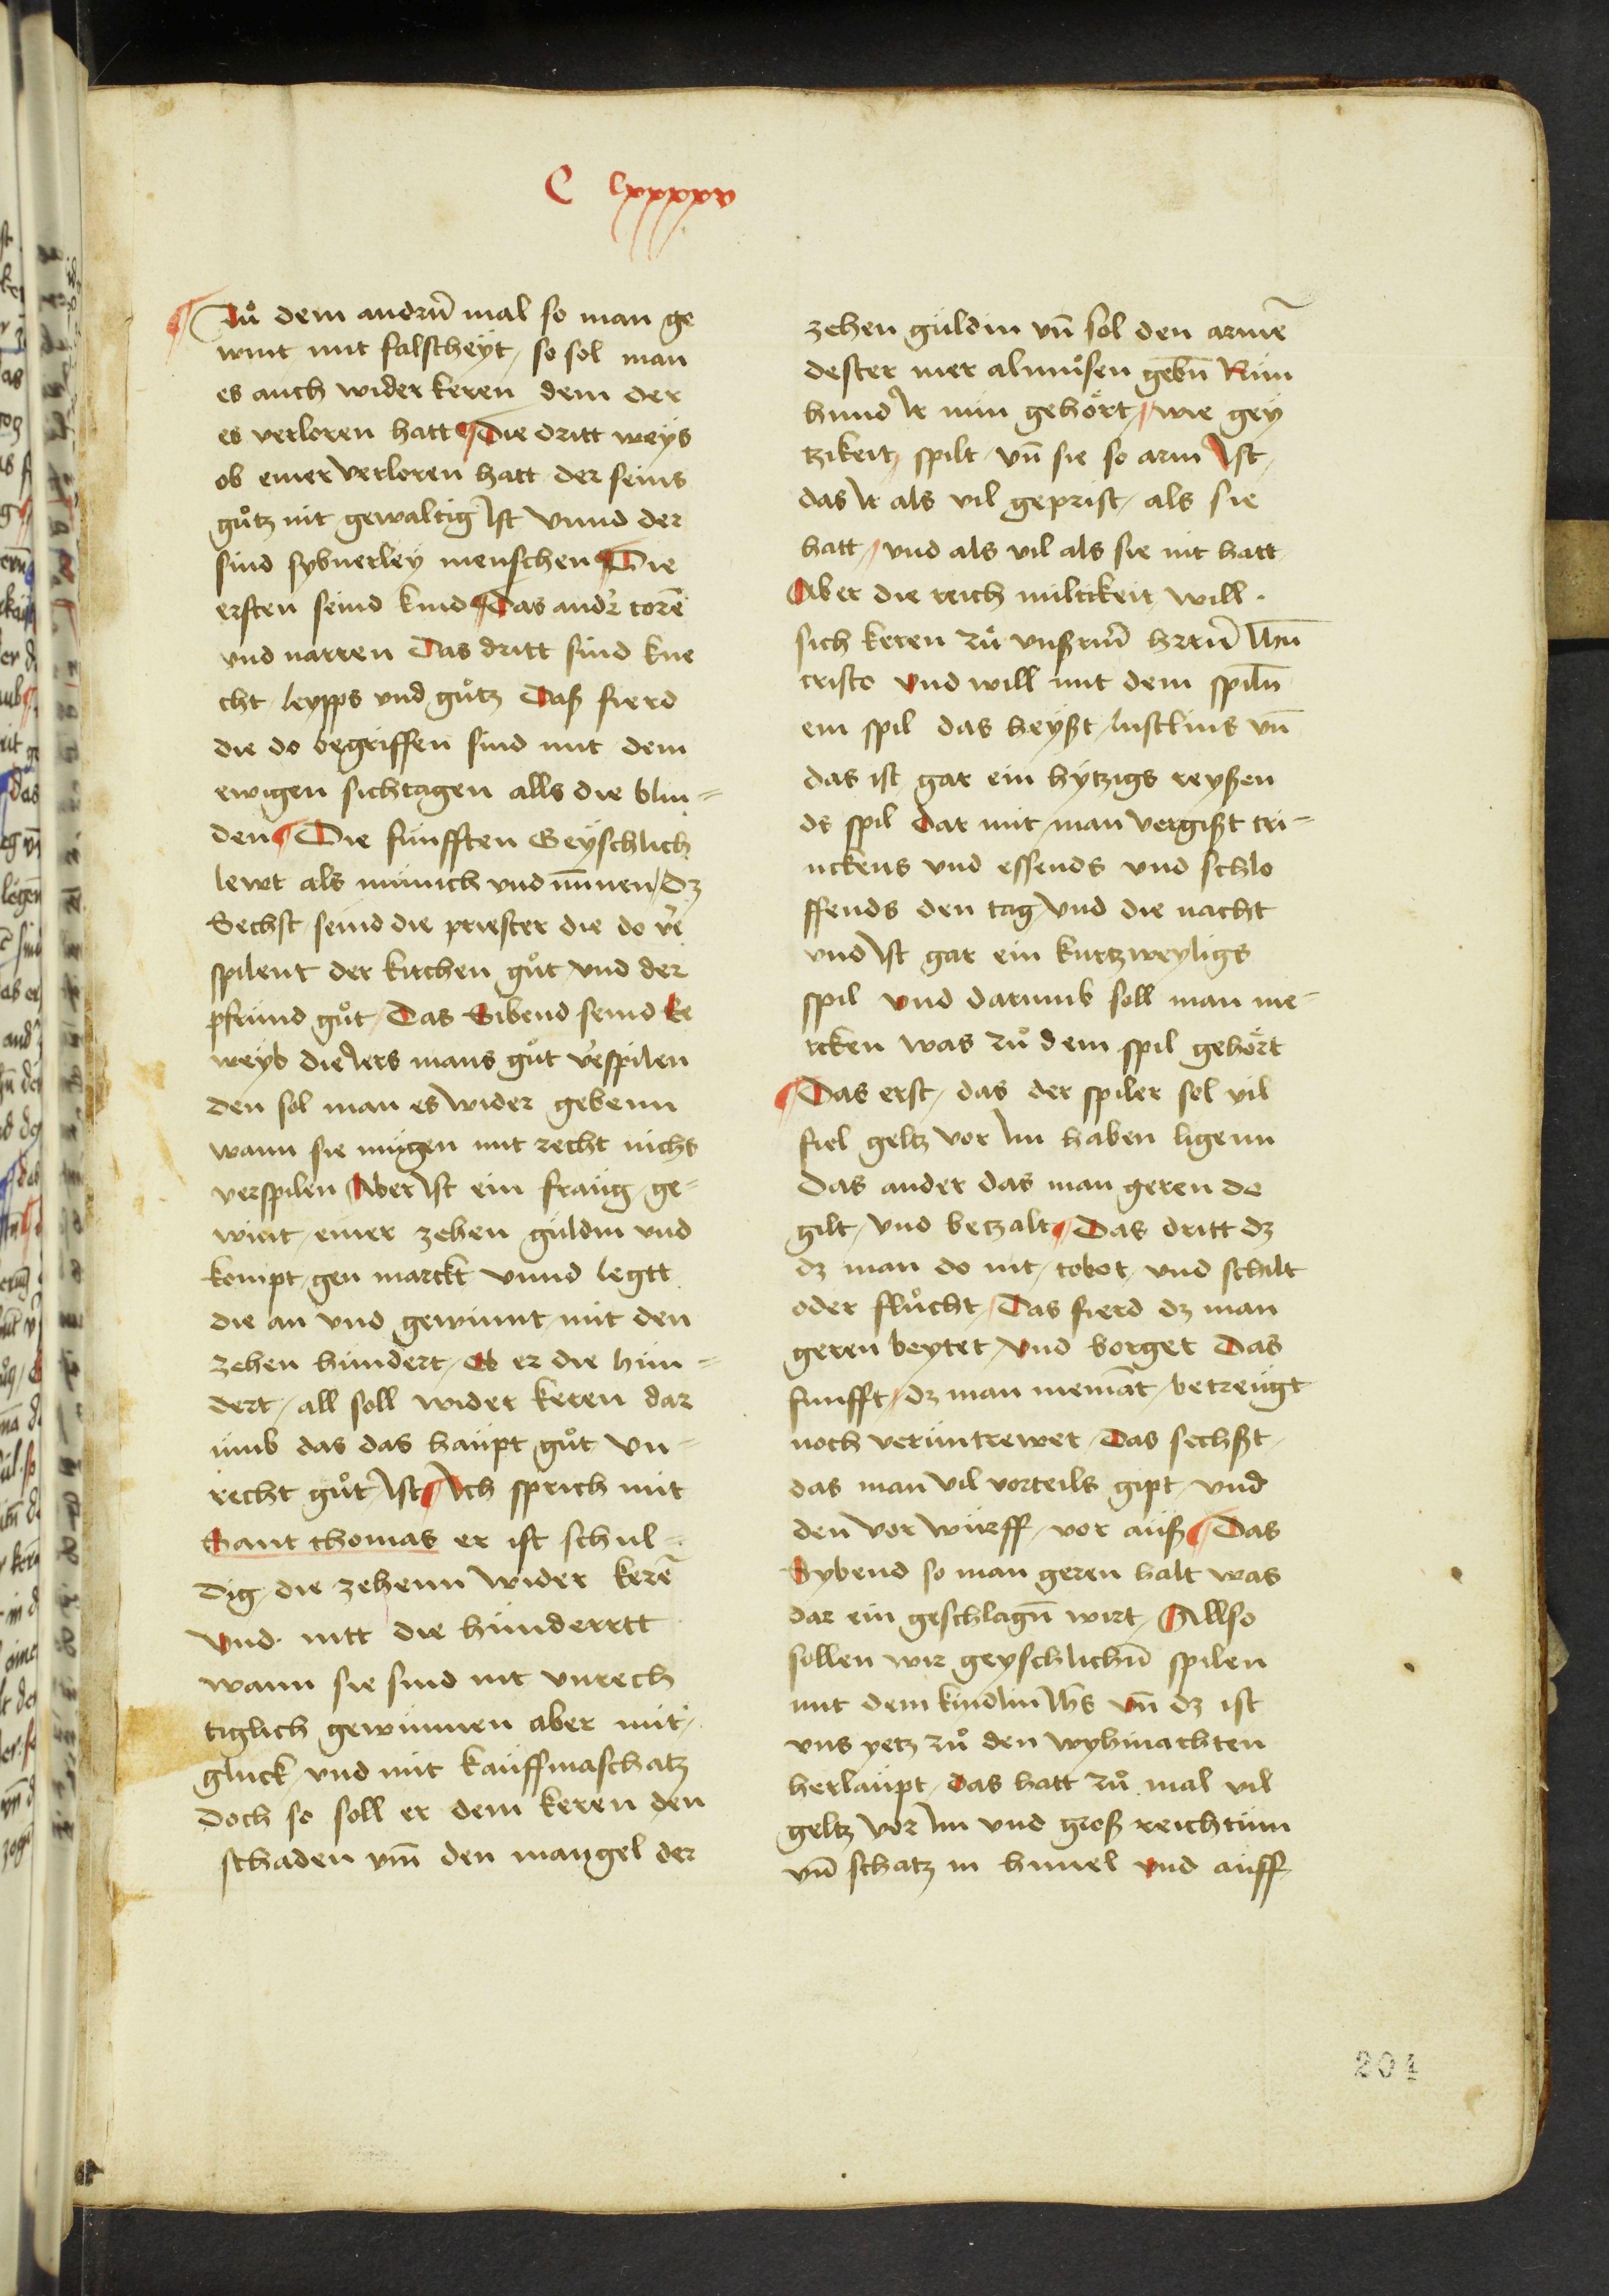 C lxxxxv
Zů dem andrn̄ mal so man ge
wint mit falscheÿt, so sol man
es auch wider keren dem der
es verloren hatt ¶ Die dritt weÿs
ob einer verloren hatt der seins
gůtz nit gewaltig Ist Vnnd der
sind sybnerleÿ menschen ¶ Die
ersten seind kind ¶ Das andr̄ torē
vnd narren Das dritt sind kne
cht leypps vnd gůtz Daß fierd
die do begriffen sind mit dem
ewigen sichtagen alls die blin=
den ¶ Die fünfften Geÿschlich
lewt als münich vnd nūnen / Dz
Sechst seind die priester die do v̄
spilent der kirchen gůt vnd der
pfründ gůt / Das Sibend seind ke
weÿb die Iers mans gůt v̄spilen
den sol man es wider gebenn
wann sie mügen mit recht nichs
verspilen Aber Ist ein fraüg / ge=
wint / einer zehen güldin vnd
kompt / gen marckt Vnnd legtt
die an vnd gewinnt / mit den
zehen hündert / Ob er die hün=
dert / all soll wider keren dar
ümb das das haüpt gůt vn=
recht gůt Ist ¶ Ich sprich mit
Sant thomas er ist schul=
dig / die zehenn wider kerē
Vnd nitt die hünderrtt
wann sie sind nit vnrech
tiglich gewünnen aber mit /
glück / vnd mit kaüffmaschatz
Doch so soll er dem keren den
schaden vm̄ den mangel der
zehen güldin vn̄ sol den armē
dester mer almůsen gebn̄ Nün
hund Ir nün gehört / wie geÿ
tzikeit spilt / vn̄ sie so arm Ist,
das Ir als vil geprist / als sie
hatt / vnd als vil als sie nit hatt
Aber die reich miltikeit will
sich keren zů vnßrm̄ hrrn̄ Ihū
cristo vnd will mit dem spiln̄
ein spil das heÿßt / lustlins vn̄
das ist gar ein hÿtzigs reÿßen
ds spil Dar mit man vergißt tri=
nckens vnd essends vnd schlo
ffends den tag / vnd die nacht
vnd Ist gar ein kürtzweyligs
spil vnd darumb soll man me=
rcken was zů dem spil gehört
¶ Das erst / das der spiler sol vil
fiel geltz vor Im haben ligenn
Das ander das man geren do
gilt / vnd betzalt ¶ Das dritt dz
dz man do nit / tobot / vnd schilt
oder flůcht / Das fierd dz man
geren beytet / vnd borget Das
fünfft / dz man niemāt / betreügt
noch verüntrewet / Das sechßt /
das man vil vorteils gipt / vnd
den vor würff / vor auß ¶ Das
Sybend so man geren halt was
dar ein geschlagn̄ wirt / Allso
sollen wir geÿschlichn̄ spilen
mit dem kindlin Ihs̄ vn̄ dz ist
vns yetz zů den wyhinachten
herlaüpt / das hatt zů mal vil
geltz vor Im vnd groß reichtüm
vn̄ schatz in himel vnd aüff
204